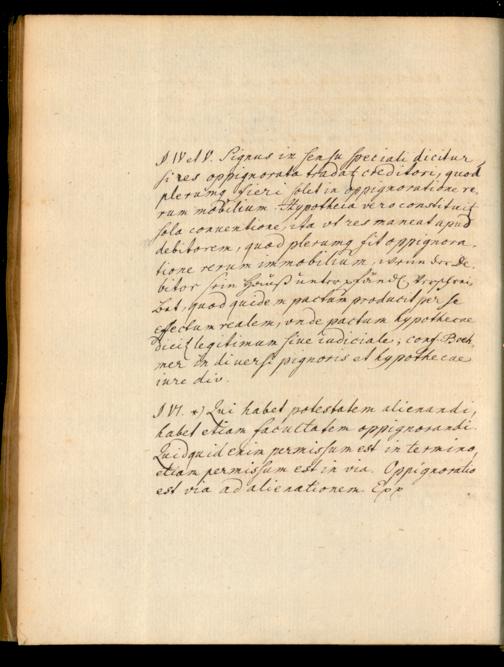 § IV et V. Pignus in sensu speciali dicitur
si res oppignorata tradat͛ creditori, quod
plerumq fieri solet in oppignoratione re
rum mobilium. Hypotheca vero constituit͛
sola conventione, ita vt res maneat apud
debitorem, quod plerumq fit oppignora-
tione rerum immobilium, wenn der De-
bitor sein Hauß
bet, quod quidem pactum producit per se
effectum realem, vnde pactum hypothecae
dicit͛ legitimum sive iudiciale; conf. Boeh
mer in diversi pignoris et hypothecae
iure div.
§ VI. Qui habet potestatem alienandi,
habet etiam facultatem oppignorandi.
Quidquid enim permissum est in termino,
etiam permissum est in via. Oppignoratio
est via ad alienationem.